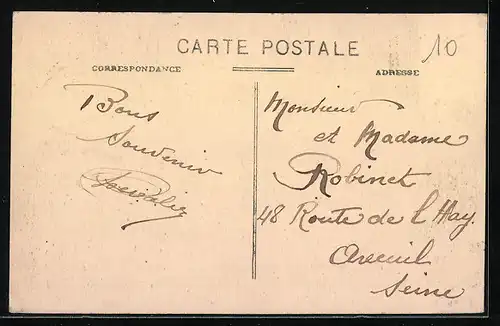 CARTE POSTALE
10
CORRESPONDANCE
ADRESSE
Bons
Souvenir
Monsieur
et Madame
Robinet
48 Route de l'Hay
Arcueil
Seine